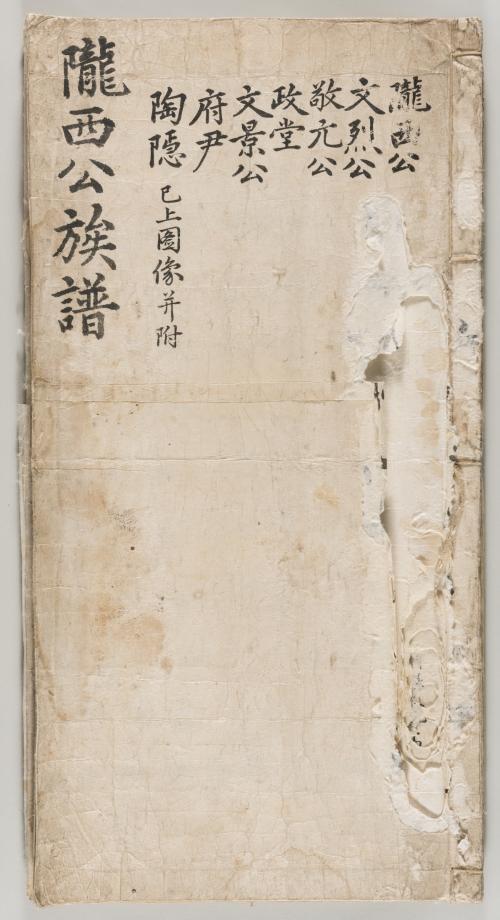 隴西公
文烈公
敬元公
政堂
文景公
府尹
陶隱
已上圖像并附
隴西公族譜